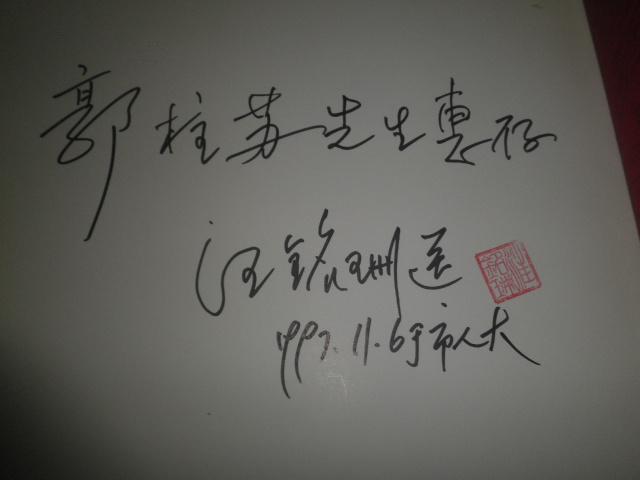 郭柱苏先生惠存
汪铭珊送
1997.11.6于市人大